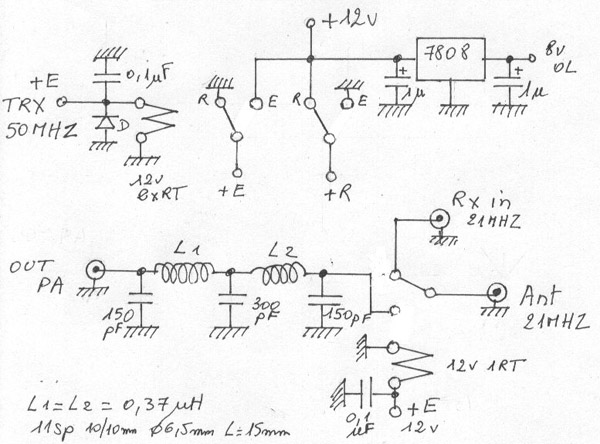 +12v
7808
8v
OL
+
1µ
+
1µ
0,1µF
+E
TRX
50MHZ
D
12v
2xRT
R
E
+E
R
E
+R
Rx in
21MHZ
OUT
PA
L1
L2
150
pF
300
pF
150pF
Ant
21MHZ
12v 1RT
0,1
µF
+E
12v
L1=L2 = 0,37µH
11sp 10/10mm ø6,5mm L=15mm